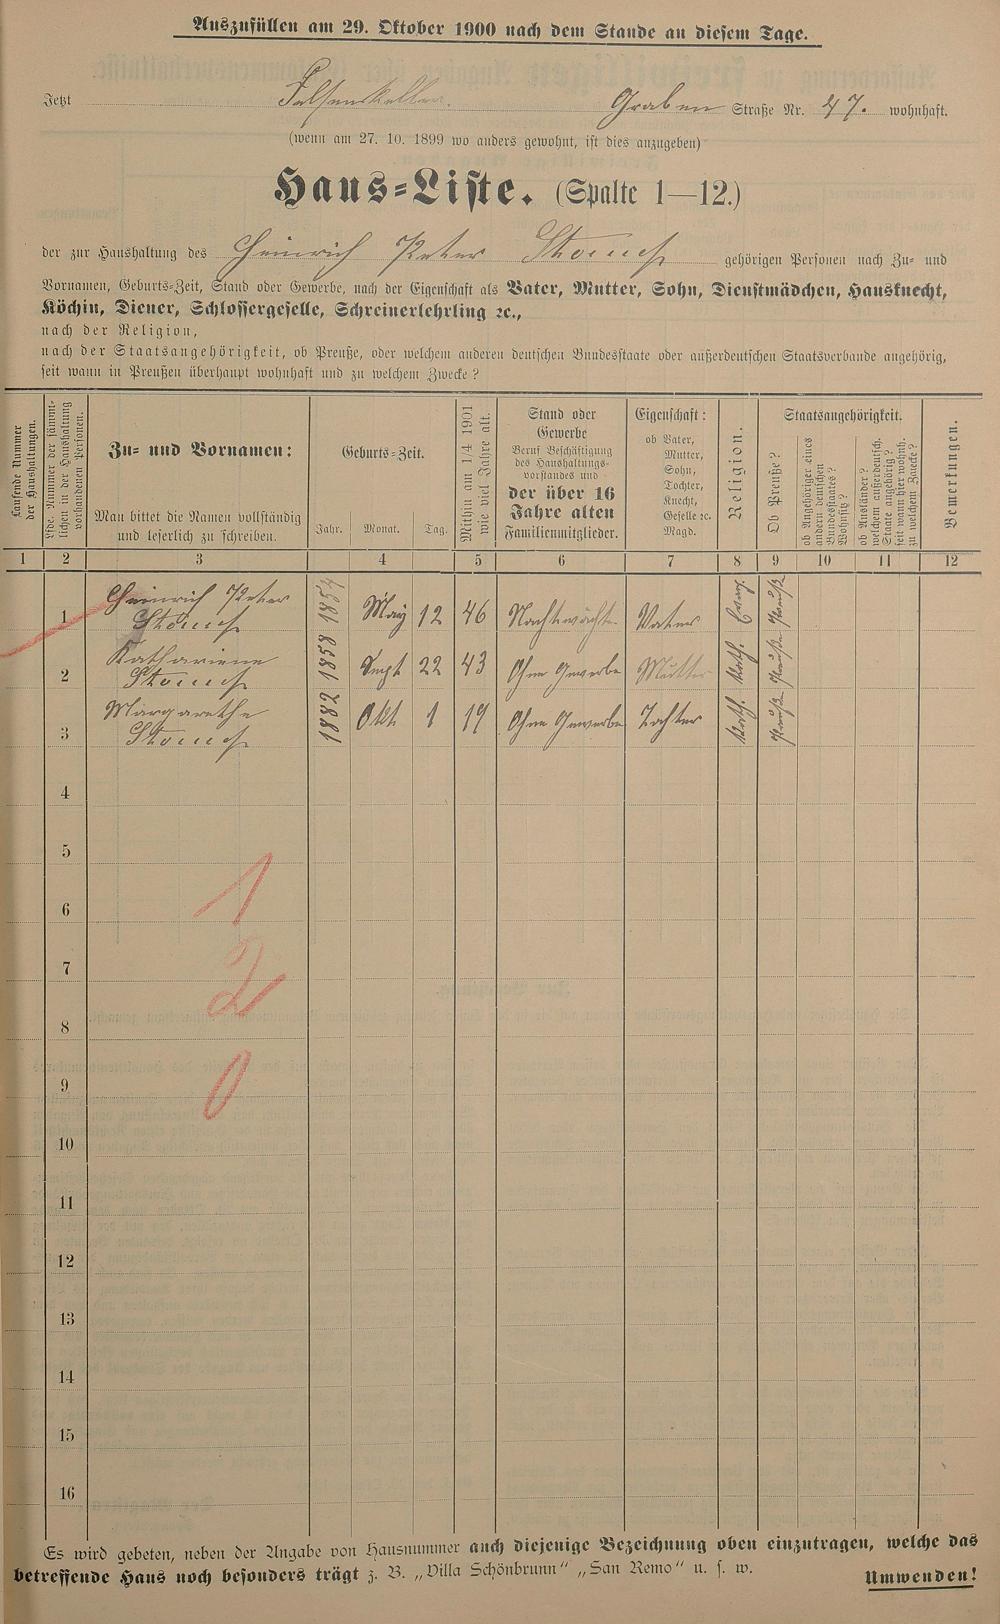 Auszufüllen am 29. Oktober 1900 nach dem Stande an diesem Tage.
Jetzt Felsenkeller. Graben Straße Nr. 47. wohnhaft.
(wenn am 27. 10. 1899 wo anders gewohnt, ist dies anzugeben)
Haus-Liste. (Spalte 1—12.)
der zur Haushaltung des Heinrich Peter gehörigen Personen nach Zu- und
Vornamen, Geburts-Zeit, Stand oder Gewerbe, nach der Eigenschaft als Vater, Mutter, Sohn, Dienstmädchen, Hausknecht,
Köchin, Diener, Schlossergeselle, Schreinerlehrling ꝛc.,
nach der Religion,
nach der Staatsangehörigkeit, ob Preuße, oder welchem anderen deutschen Bundesstaate oder außerdeutschen Staatsverbande angehörig,
seit wann in Preußen überhaupt wohnhaft und zu welchem Zwecke?
Laufende Nummer der Haushaltungen.
Lfde. Nummer der sämmtlichen in der Haushaltung vorhandenen Personen.
Zu- und Vornamen:
Man bittet die Namen vollständig
und leserlich zu schreiben.
Geburts-Zeit.
Jahr. Monat. Tag.
Mithin am 1/4 1901 wie viel Jahre alt.
Stand oder
Gewerbe
Beruf Beschäftigung
des Haushaltungs-
vorstandes und
der über 16
Jahre alten
Familienmitglieder.
Eigenschaft:
ob Vater,
Mutter,
Sohn,
Tochter,
Knecht,
Geselle ꝛc.
Magd.
Religion.
Staatsangehörigkeit.
Ob Preuße?
ob Angehöriger eines andern deutschen Bundesstaates? Wohnsitz?
ob Ausländer? welchem außerdeutsch. Staate angehörig? seit wann hier wohnh. zu welchem Zwecke?
Bemerkungen.
1 2 3 4 5 6 7 8 9 10 11 12
1 Heinrich Peter 1854 May 12 46 Nachtwächter Vater Evang. Preuße
2 Katharine 1858 Sept 22 43 Ohne Gewerbe Mutter Kath. Preuße
3 Margarethe 1882 Okt 1 19 Ohne Gewerbe Tochter Kath. Preuße
4
5
6
1
7
2
8
9
0
10
11
12
13
14
15
16
Es wird gebeten, neben der Angabe von Hausnummer auch diejenige Bezeichnung oben einzutragen, welche das
betreffende Haus noch besonders trägt z. B. „Villa Schönbrunn" „San Remo" u. s. w.
Umwenden!